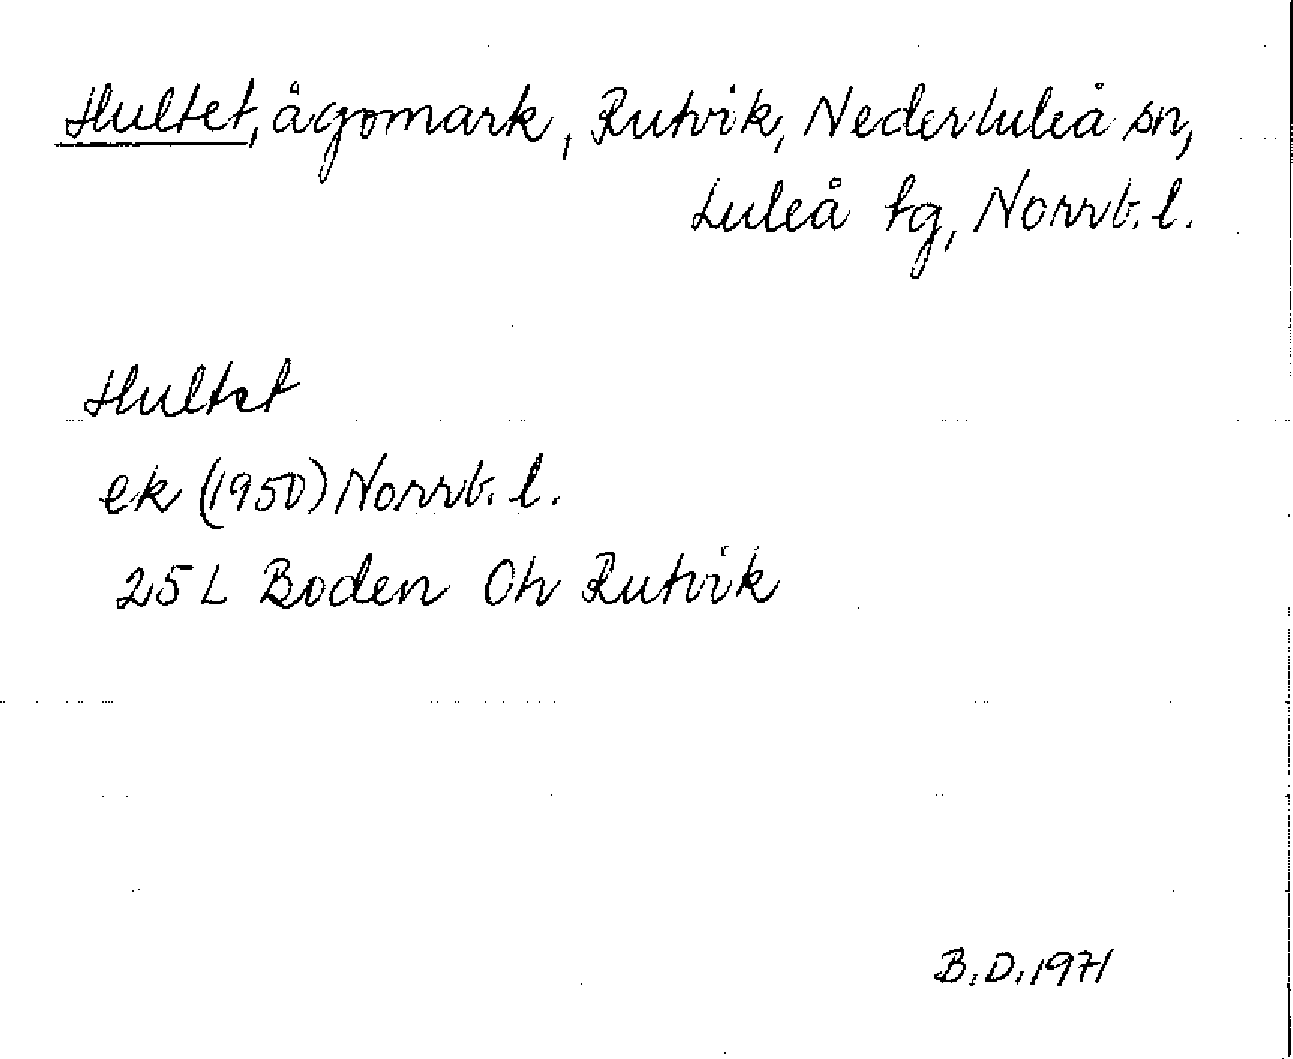 Hultet, ägomark, Rutvik, Nederluleå sn,
Luleå tg, Norrb. l.
Hultet
ek (1950) Norrb. l.
25 L Boden Ö Rutvik
B. D. 1971